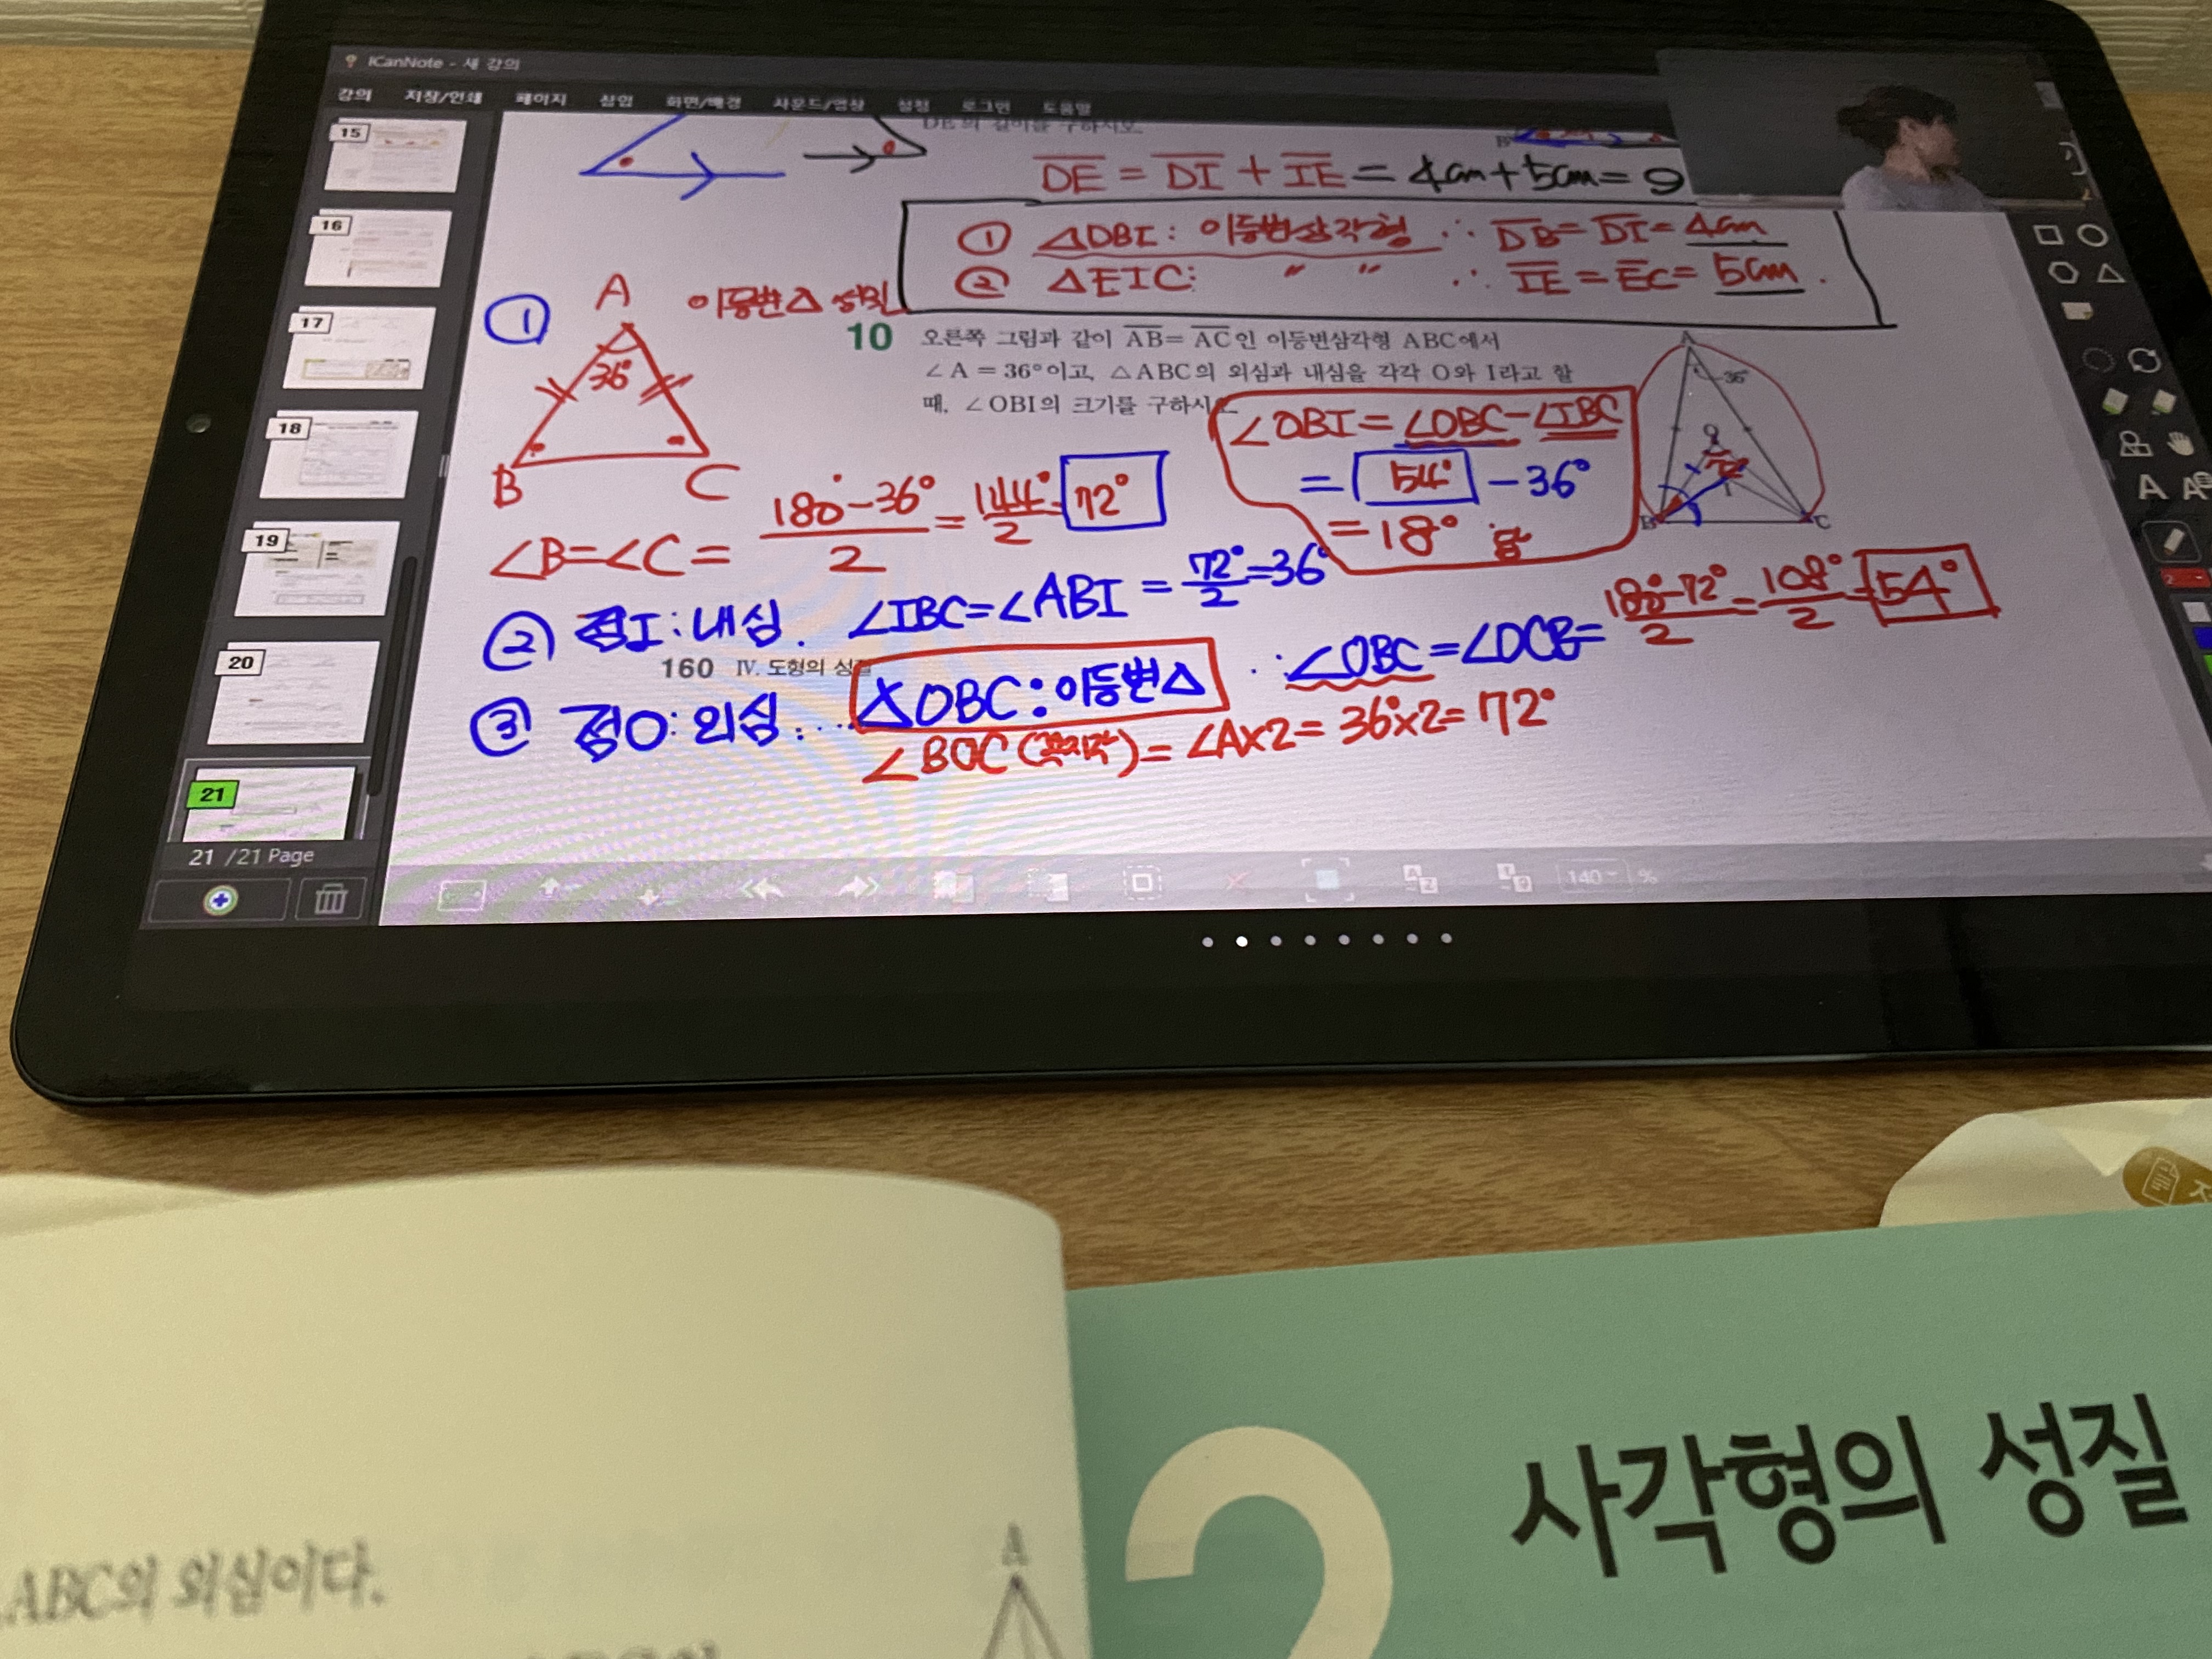 ICanNote - 새 강의
강의 저장/인쇄 페이지 삽입 화면/배경 사운드/영상 설정 로그인 도움말
15
16
17
18
19
20
21
21 /21 Page
DE의 길이를 구하시오.
DE = DI + IE = 4cm+5cm= 9
① △DBI: 이등변삼각형 ∴ DB=DI=4cm
② △EIC: " " ∴ IE=EC=5cm.
① A 이등변△ 성질
36°
B C
10 오른쪽 그림과 같이 AB=AC인 이등변삼각형 ABC에서
∠A=36°이고, △ABC의 외심과 내심을 각각 O와 I라고 할
때, ∠OBI의 크기를 구하시오
A
36°
O
I
B C
∠OBI = ∠OBC-∠IBC
= 54° -36°
=18° 답
∠B=∠C= 180°-36°/2 = 144°/2 = 72°
② 점I: 내심. ∠IBC=∠ABI = 72°/2=36°
160 IV. 도형의 성질
③ 점O: 외심: ... △OBC: 이등변△ ∴ ∠OBC=∠OCB= 180°-72°/2 = 108°/2 = 54°
∠BOC (꼭지각)= ∠A×2= 36°×2= 72°
140 %
ABC의 외심이다.
A
2 사각형의 성질